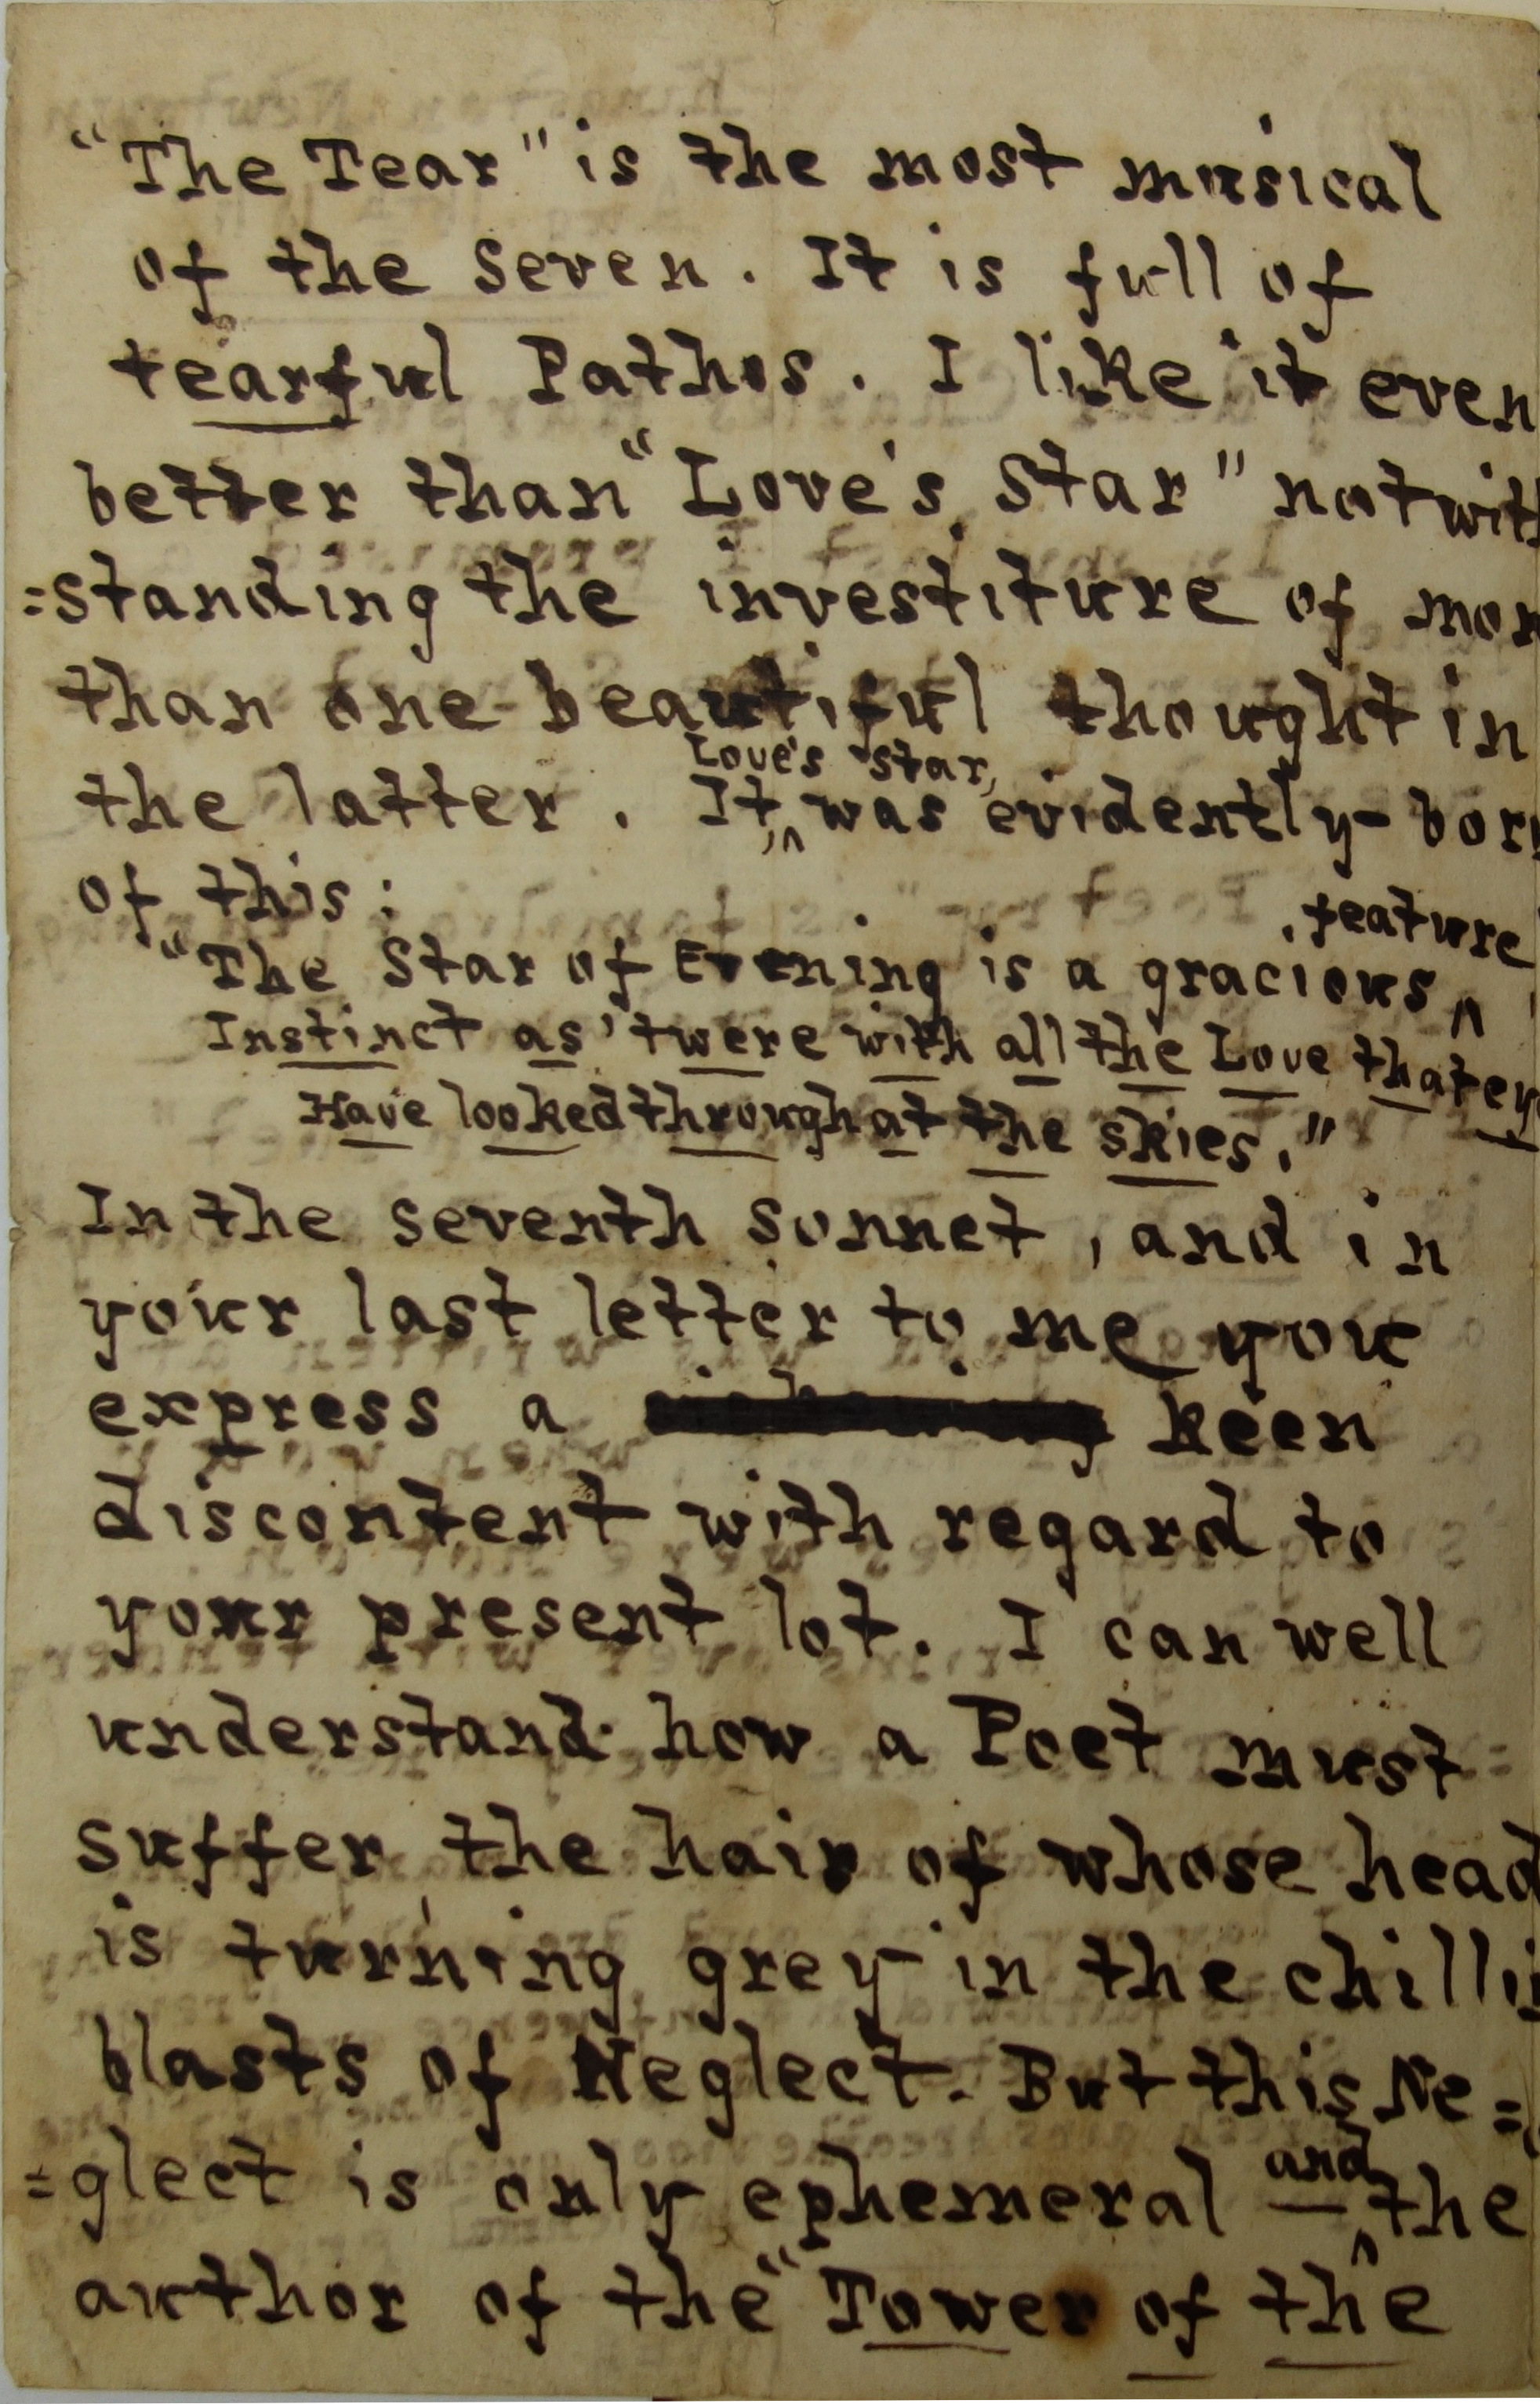 "The Tear" is the most musical
of the seven. It is full of
tearful Pathos. I like it even
better than "Love's Star" notwith
=standing the investiture of mor
than one beautiful thought in
the latter. It, ^ Love's Star, was evidently born
of this:
"The Star of Evening is a gracious ^ feature,
Instinct as 'twere with all the Love that ey
Have looked through at the skies."
In the seventh sonnet, and in
your last letter to me you
express a keen
discontent with regard to
your present lot. I can well
understand how a Poet must
suffer, the hair of whose head
is turning grey in the chilli
blasts of Neglect. But this Ne=
=glect is only ephemeral — ^ and the
author of the "Tower of the